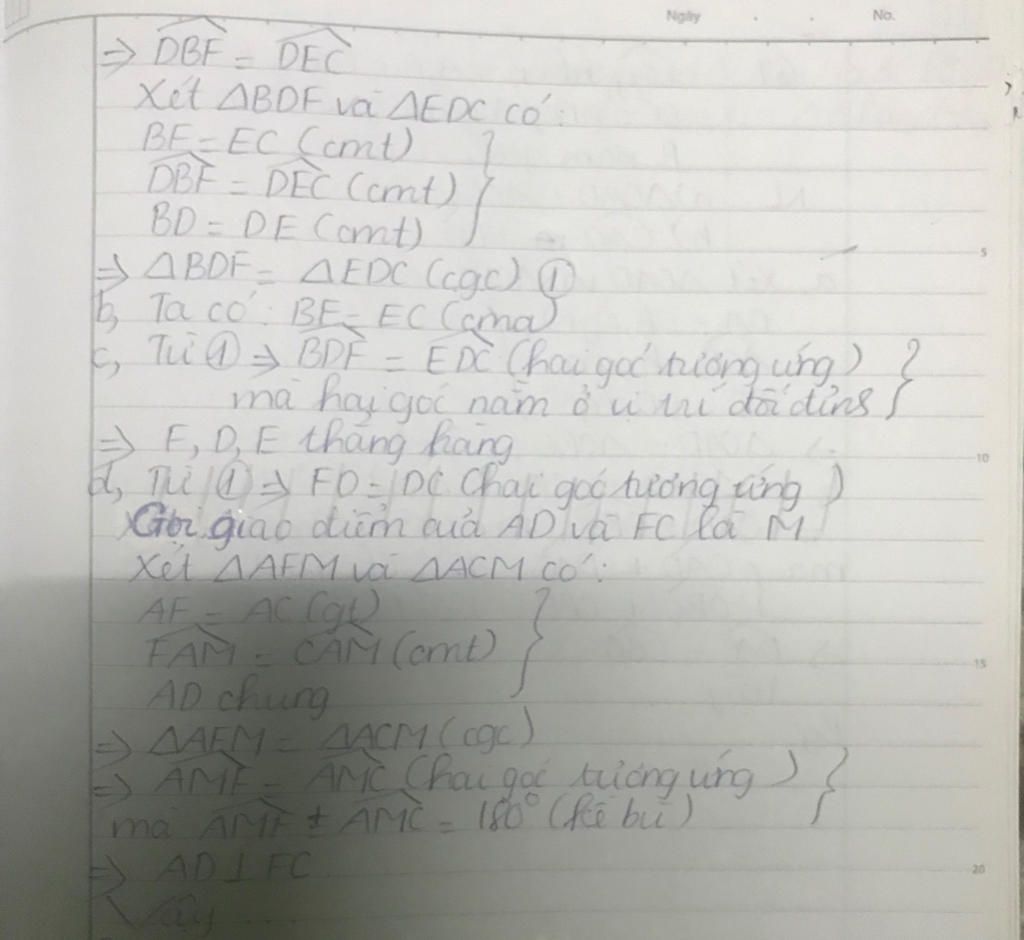 Ngày . . No.
⇒ DBF = DEC
Xét ΔBDF và ΔEDC có:
BF = EC (cmt)
DBF = DEC (cmt)
BD = DE (cmt)
5
⇒ ΔBDF = ΔEDC (cgc) ①
b, Ta có: BF = EC (cma)
c, Từ ① ⇒ BDF = EDC (hai góc tương ứng)
mà hai góc nằm ở vị trí đối đỉnh
⇒ F, D, E thẳng hàng
10
d, Từ ① ⇒ FD = DC (hai góc tương ứng)
Gọi giao điểm của AD và FC là M
Xét ΔAFM và ΔACM có:
AF = AC (gt)
FAM = CAM (cmt)
15
AD chung
⇒ ΔAFM = ΔACM (cgc)
⇒ AMF = AMC (hai góc tương ứng)
mà AMF + AMC = 180° (kề bù)
⇒ AD ⊥ FC
20
Vậy ...